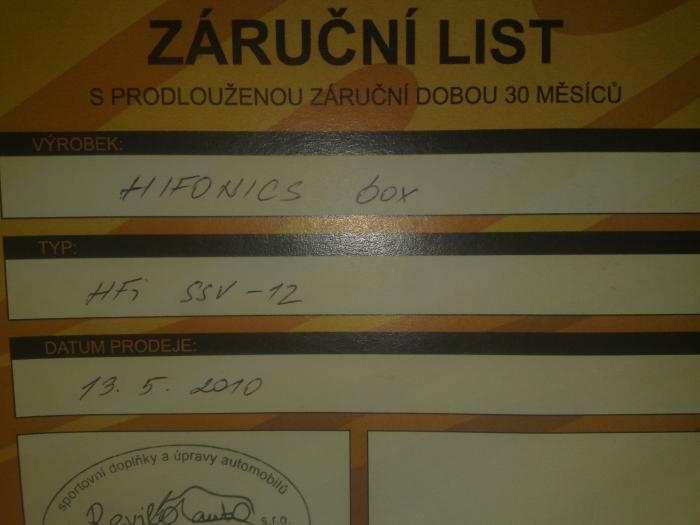 ZÁRUČNÍ LIST
S PRODLOUŽENOU ZÁRUČNÍ DOBOU 30 MĚSÍCŮ
VÝROBEK:
HIFONICS box
TYP:
HFi SSV-12
DATUM PRODEJE:
13. 5. 2010
sportovní doplňky a úpravy automobilů
auto s.r.o.